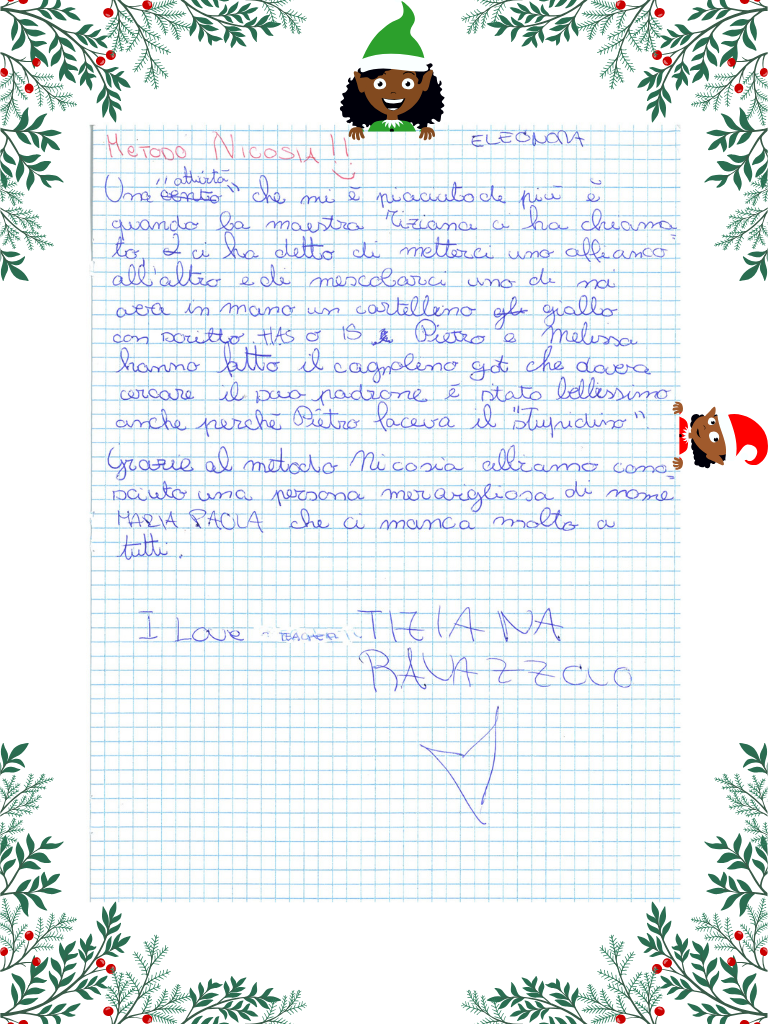 METODO NICOSIA!!
ELEONORA
"attività"
Una che mi è piaciuto de più è
quando la maestra Tiziana ci ha chiama=
to, 2 ci ha detto di metterci uno affianco
all'altro e di mescolarci uno de noi
aveva in mano un cartellino giallo
con scritto HAS o IS Pietro e Melissa
hanno fatto il cagnoleno got che doveva
cercare il suo padrone é stato bellissimo
anche perché Pietro faceva il "stupidino".
Grazie al metodo Nicosia abbiamo cono=
sciuto una persona meravigliosa di nome
MARIA PAOLA che ci manca molto a
tutti.
I LOVE TEACHER TIZIANA
RAVAZZOLO